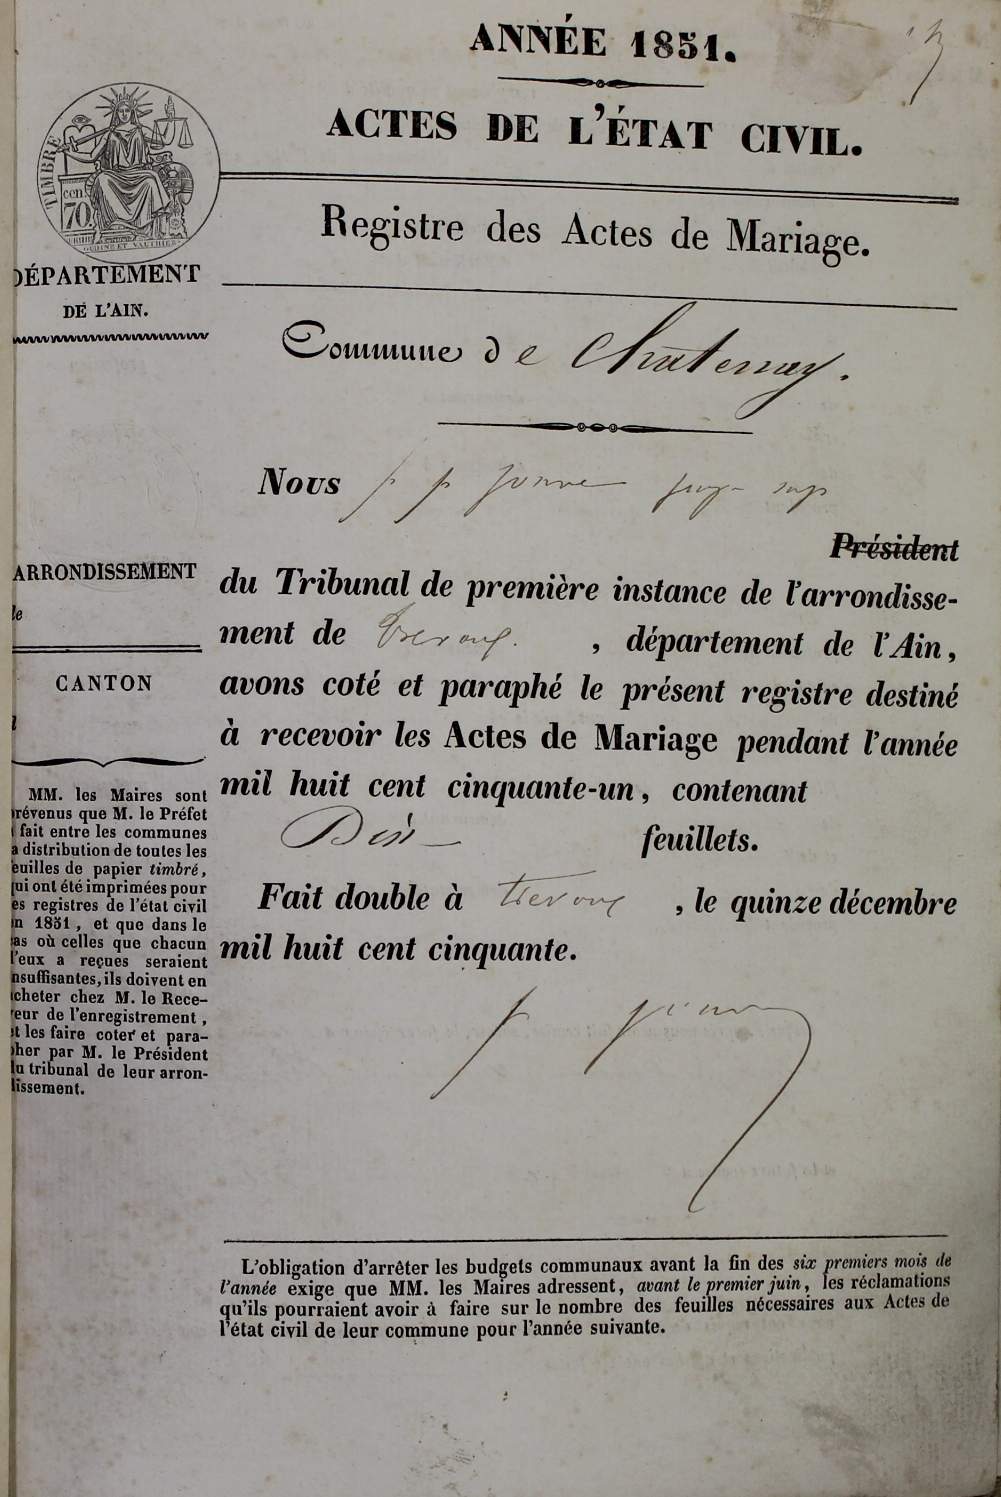 ANNÉE 1851.
ACTES DE L'ÉTAT CIVIL.
TIMBRE
cen.
70
Registre des Actes de Mariage.
DÉPARTEMENT
DE L'AIN.
Commune de Chatenay.
Nous
Président
ARRONDISSEMENT
le
CANTON
du Tribunal de première instance de l'arrondisse-
ment de Trevoux. , département de l'Ain,
avons coté et paraphé le présent registre destiné
à recevoir les Actes de Mariage pendant l'année
mil huit cent cinquante-un, contenant
Dix feuillets.
Fait double à Trevoux , le quinze décembre
mil huit cent cinquante.
MM. les Maires sont
révenus que M. le Préfet
fait entre les communes
a distribution de toutes les
euilles de papier timbré,
ui ont été imprimées pour
es registres de l'état civil
n 1851, et que dans le
as où celles que chacun
'eux a reçues seraient
nsuffisantes, ils doivent en
cheter chez M. le Rece-
eur de l'enregistrement,
t les faire coter et para-
her par M. le Président
u tribunal de leur arron-
issement.
L'obligation d'arrêter les budgets communaux avant la fin des six premiers mois de
l'année exige que MM. les Maires adressent, avant le premier juin, les réclamations
qu'ils pourraient avoir à faire sur le nombre des feuilles nécessaires aux Actes de
l'état civil de leur commune pour l'année suivante.